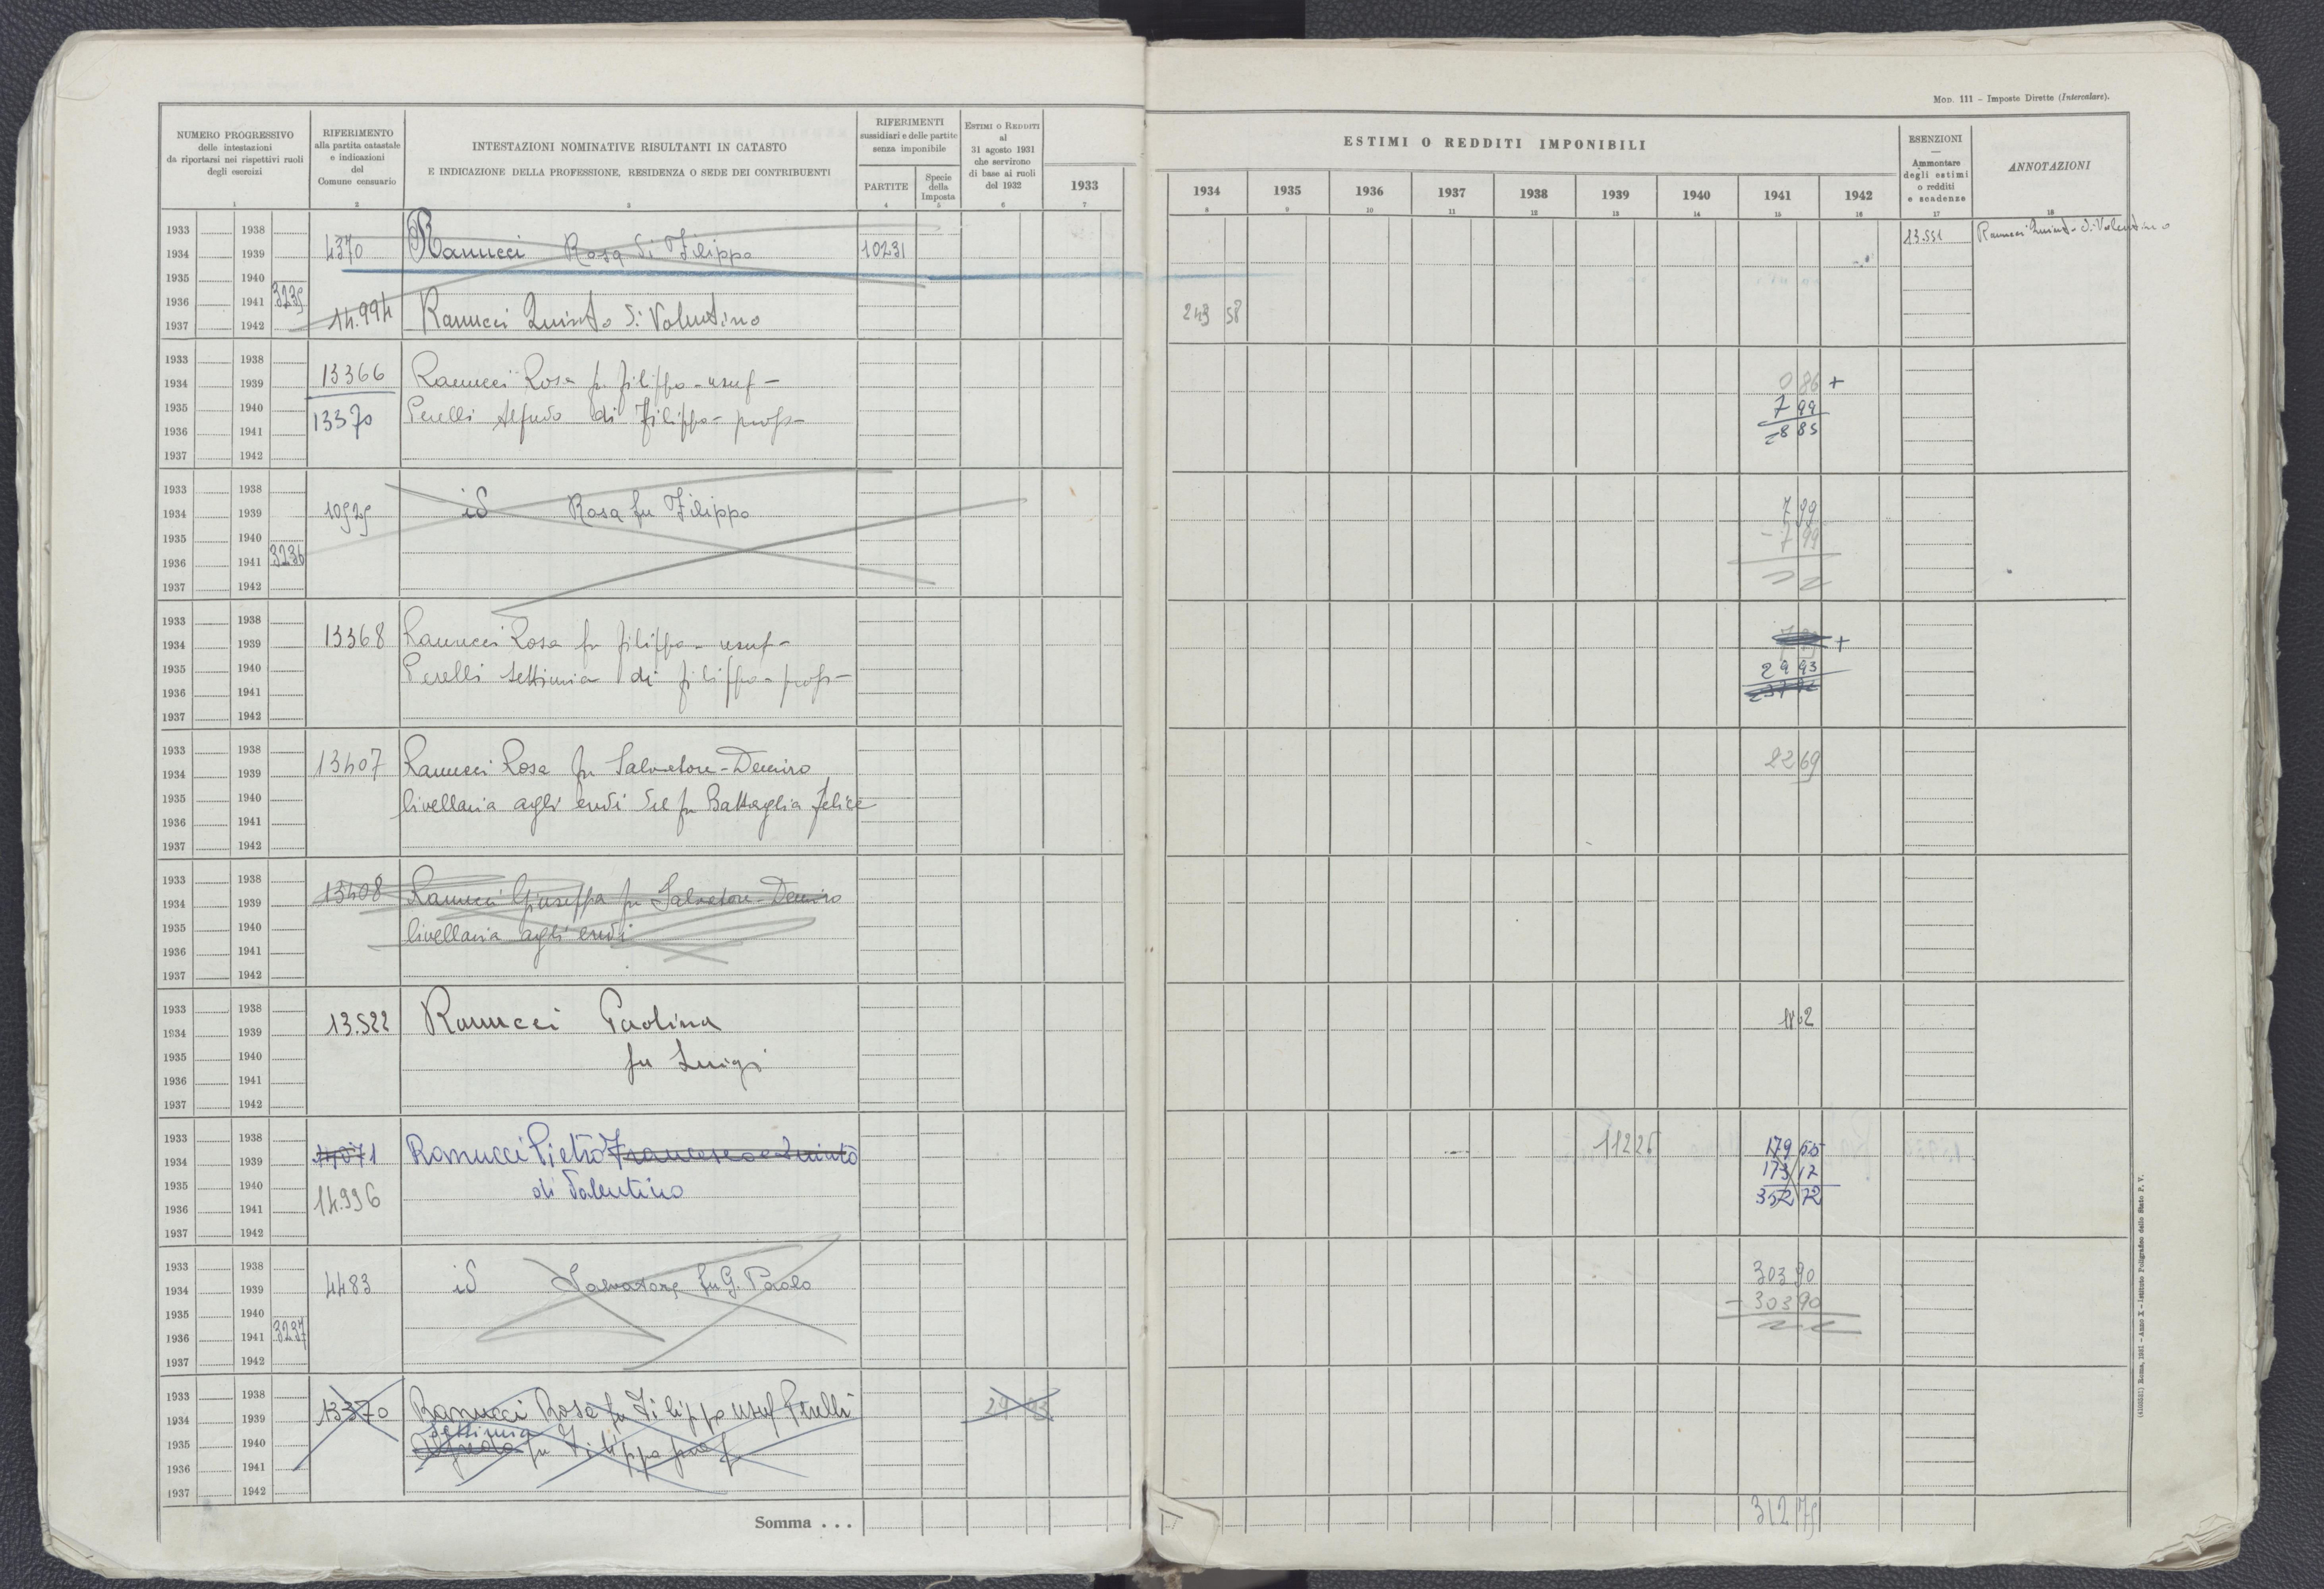 MOD. 111 - Imposte Dirette (Intercalare).
NUMERO PROGRESSIVO
delle intestazioni
da riportarsi nei rispettivi ruoli
degli esercizi
RIFERIMENTO
alla partita catastale
e indicazioni
del
Comune censuario
INTESTAZIONI NOMINATIVE RISULTANTI IN CATASTO
E INDICAZIONE DELLA PROFESSIONE, RESIDENZA O SEDE DEI CONTRIBUENTI
RIFERIMENTI
sussidiari e delle partite
senza imponibile
PARTITE
Specie
della
Imposta
ESTIMI O REDDITI
al
31 agosto 1931
che servirono
di base ai ruoli
del 1932
ESTIMI O REDDITI IMPONIBILI
1933 1934 1935 1936 1937 1938 1939 1940 1941 1942
ESENZIONI
—
Ammontare
degli estimi
o redditi
e scadenze
ANNOTAZIONI
1 2 3 4 5 6 7 8 9 10 11 12 13 14 15 16 17 18
1933 1938
1934 1939
1935 1940
1936 1941 3235
1937 1942
4370 Ranucci Rosa di Filippo 10231
13.551 Ranucci Quinto di Valentino
14.994 Ranucci Quinto di Valentino 249 58
1933 1938
1934 1939
1935 1940
1936 1941
1937 1942
13366 Ranucci Rosa fu filippo - usuf -
0 86 +
13370 Perelli Alfredo di Filippo - propr -
7 99
8 85
1933 1938
1934 1939
1935 1940
1936 1941 3236
1937 1942
10929 id Rosa fu Filippo
7 99
- 7 99
1933 1938
1934 1939
1935 1940
1936 1941
1937 1942
13368 Ranucci Rosa fu filippo - usuf -
+
Perelli Settimia di filippo - propr -
29 93
1933 1938
1934 1939
1935 1940
1936 1941
1937 1942
13407 Ranucci Rosa fu Salvatore - Decimo
22 69
livellaria agli eredi del fu Battaglia felice
1933 1938
1934 1939
1935 1940
1936 1941
1937 1942
13408 Ranucci Giuseppa fu Salvatore - Decimo
livellaria agli eredi
1933 1938
1934 1939
1935 1940
1936 1941
1937 1942
13.522 Ranucci Paolina
fu Luigi
1933 1938
1934 1939
1935 1940
1936 1941
1937 1942
14071 Ranucci Pietro Francesco e Quinto
112 25
179 55
di Valentino
173 17
14.996
352 72
1933 1938
1934 1939
1935 1940
1936 1941 3237
1937 1942
4483 id Salvatore fu G. Paolo
303 90
- 303 90
1933 1938
1934 1939
1935 1940
1936 1941
1937 1942
13370 Ranucci Rosa fu Filippo usuf Perelli
Settimia
Alfredo fu Filippo prop
Somma . . .
312 79
(4100531) Roma, 1931 - Anno X - Istituto Poligrafico dello Stato P. V.